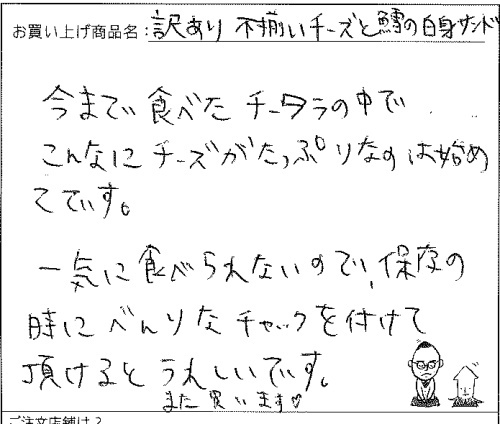 お買い上げ商品名:訳あり 不揃いチーズと鱈の白身サンド
今まで食べたチータラの中で
こんなにチーズがたっぷりなのは始め
てです。
一気に食べられないので、保存の
時にべんりなチャックを付けて
頂けるとうれしいです。
また買います♡
ご注文店舗は?